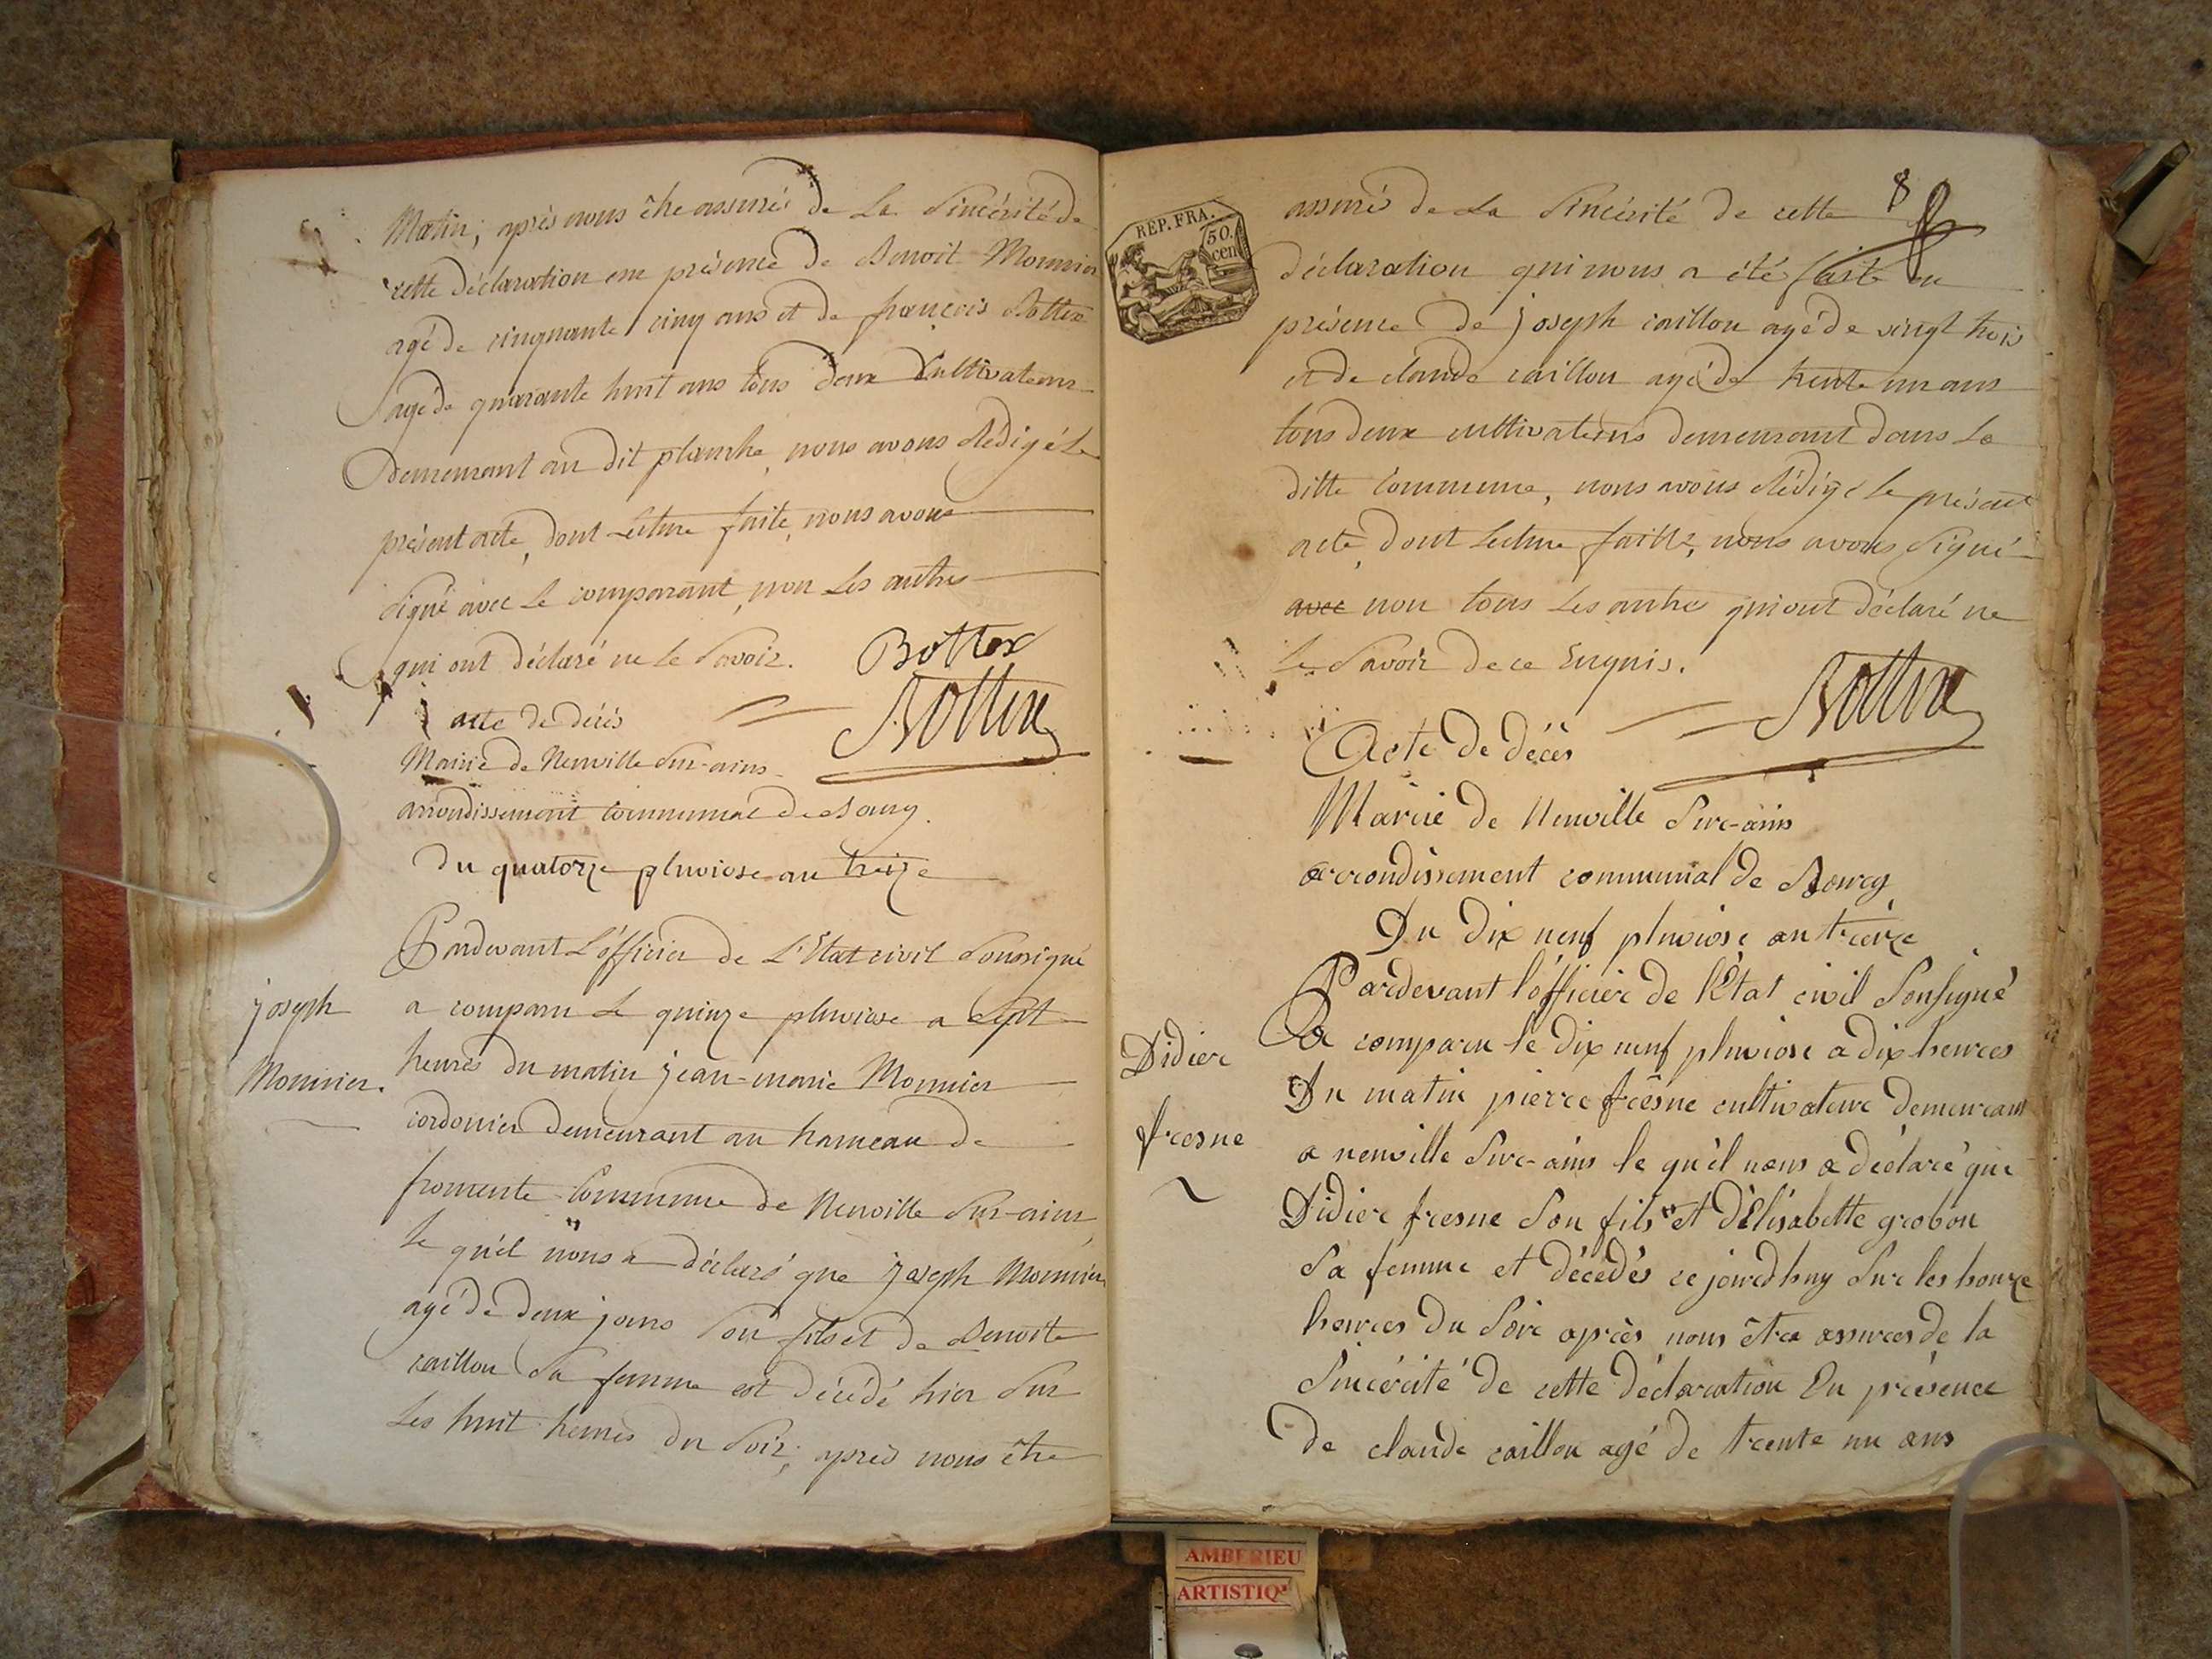 Matin, après nous être assuré de La Sincérité de
cette déclaration en présence de Benoit Monnier
agé de cinquante cinq ans et de françois Bottex
agé de quarante huit ans tous deux Cultivateurs
Demeurant au dit planche, nous avons Rédigé Le
présent acte, dont Lecture faite, nous avons
signé avec Le comparant, non Les autres
qui ont déclaré ne Le Savoir. Bottex
Bottex
acte de décès
Mairie de Neuville Sur-ains
arrondissement Communal de Bourg.
Du quatorze pluviose an treize
Pardevant L'officier de L'Etat civil Soussigné
joseph
Monnier.
a comparu Le quinze pluviose a Sept
heures du matin jean-marie Monnier
cordonier demeurant au hameau de
fromente Commune de Neuville Sur-ains,
le quel nous a déclaré que joseph Monnier
agé de deux jours Son fils et de Benoite
caillou Sa femme est décédé hier Sur
Les huit heures du Soir; après nous être
8
REP. FRA.
50.
cen
assuré de La Sincérité de cette
déclaration qui nous a été faite en
présence de joseph caillou agé de vingt trois
et de claude caillou agé de trente un ans
tous deux cultivateurs demeurant dans La
ditte Commune, nous avons Rédigé Le présent
acte, dont Lecture faitte, nous avons Signé
avec non tous Les autres qui ont déclaré ne
Le Savoir de ce Enquis.
Bottex
Acte de décès
Mairie de Neuville Sur-ains
arrondissement communal de Bourg
Du dix neuf pluviose an treize
Pardevant l'officier de l'Etat civil Sousigné
Didier
fresne
a comparu le dix neuf pluviose a dix heures
Du matin pierre fresne cultivateur demeurant
a neuville Sur-ains le quel nous a déclaré que
Didier fresne Son fils et d'Elisabette grobon
Sa femme et décédés ce jourdhuy Sur les honze
heures du Soir après nous être assures de la
Sincérité de cette déclaration En présence
de claude caillou agé de trente un ans
AMBERIEU
ARTISTIQ